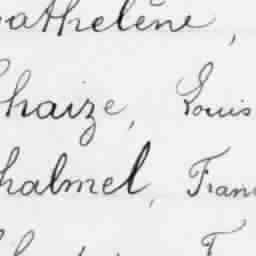 athelène,
haize, Louis
halmel, Fran